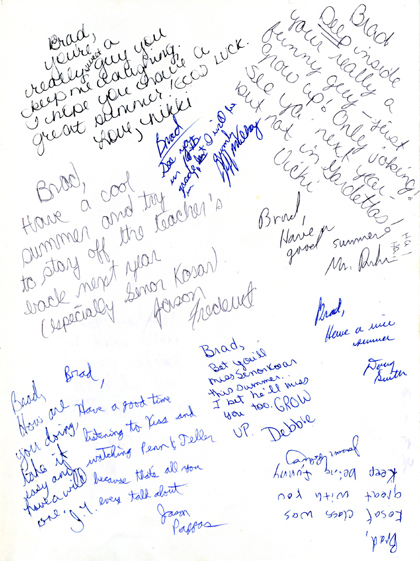 Brad,
you're
really a guy you
sweet
keep me laughing.
I hope you have a
great summer! GOOD LUCK.
Love, Nikki
Brad
DEEP inside
your really a
funny guy - just
grow up! Only joking!
See ya' next year -
but not in Gardettos
Vicki
Brad
See you
in
Brad,
Have a cool
summer and try
to stay off the teacher's
back next year
(especially Senor Kosar).
Jason
Frederick
Brad,
Have a
good summer!
Mr.
Brad,
Have a nice
summer
Doug
Brad,
Bet you'll
miss Senor Kosar
this summer...
I bet he'll miss
you too. GROW
UP. Debbie
Brad,
How are
you doing,
take it
easy and
have a wild
one.
J.Y.
Brad,
Have a good time
listening to Kiss and
watching Penn & Teller
because that's all you
ever talk about
Jason
Pappas
Brad,
Kosar class was
great with you
Keep being funny